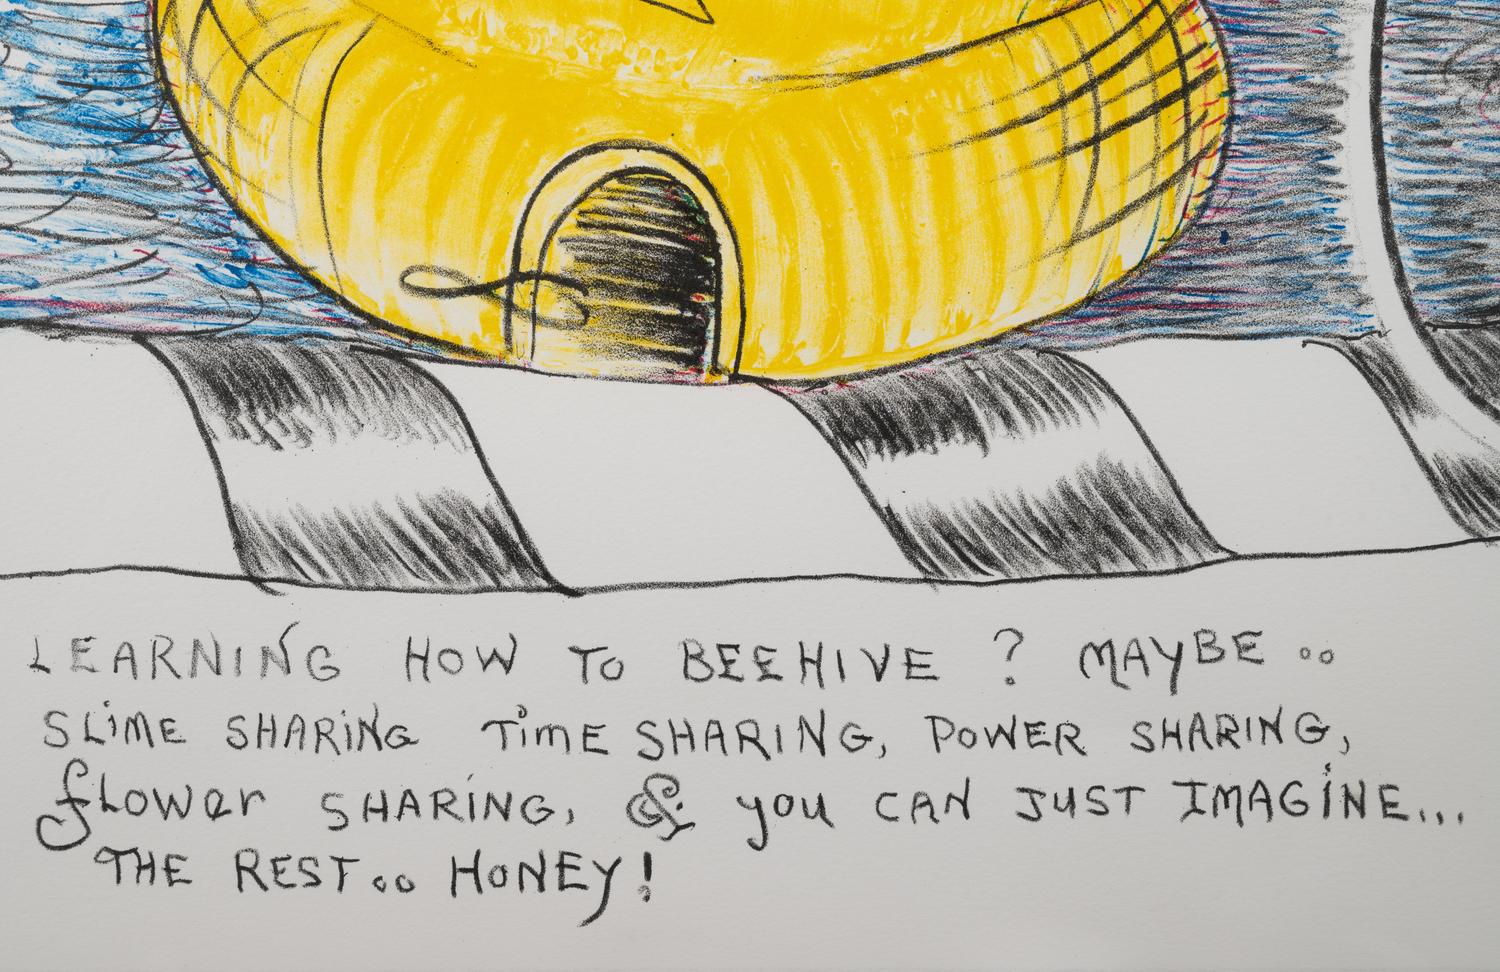 LEARNING HOW TO BEEHIVE ? MAYBE ..
SLiME SHARiNG TimE SHARING, POWER SHARING,
flower SHARING, & you CAN JUST IMAGINE...
THE REST .. HONEY!